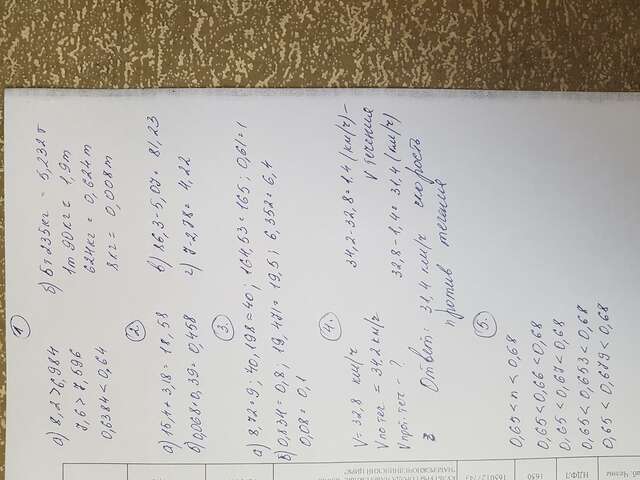 1
а) 8,2 > 6,984
7,6 > 7,596
0,6384 < 0,64
б) 5т 235кг = 5,232т
1т 90кг = 1,9т
624кг = 0,624т
8кг = 0,008т
2.
а) 15,4 + 3,18 = 18,58
б) 0,068 + 0,39 = 0,458
в) 86,3 - 5,07 = 81,23
г) 7 - 2,78 = 4,22
3.
а) 8,72 = 9; 40,198 = 40; 164,53 = 165; 0,61 = 1
б) 0,834 = 0,8; 19,461 = 19,5; 6,352 = 6,4
0,08 = 0,1
4.
V = 32,8 км/ч
V по теч = 34,2 км/ч
V пр. теч - ?
34,2 - 32,8 = 1,4 (км/ч) -
V течения
32,8 - 1,4 = 31,4 (км/ч)
Ответ: 31,4 км/ч скорость
против течения
5.
0,65 < n < 0,68
0,65 < 0,66 < 0,68
0,65 < 0,67 < 0,68
0,65 < 0,653 < 0,68
0,65 < 0,679 < 0,68
НДФЛ
1650